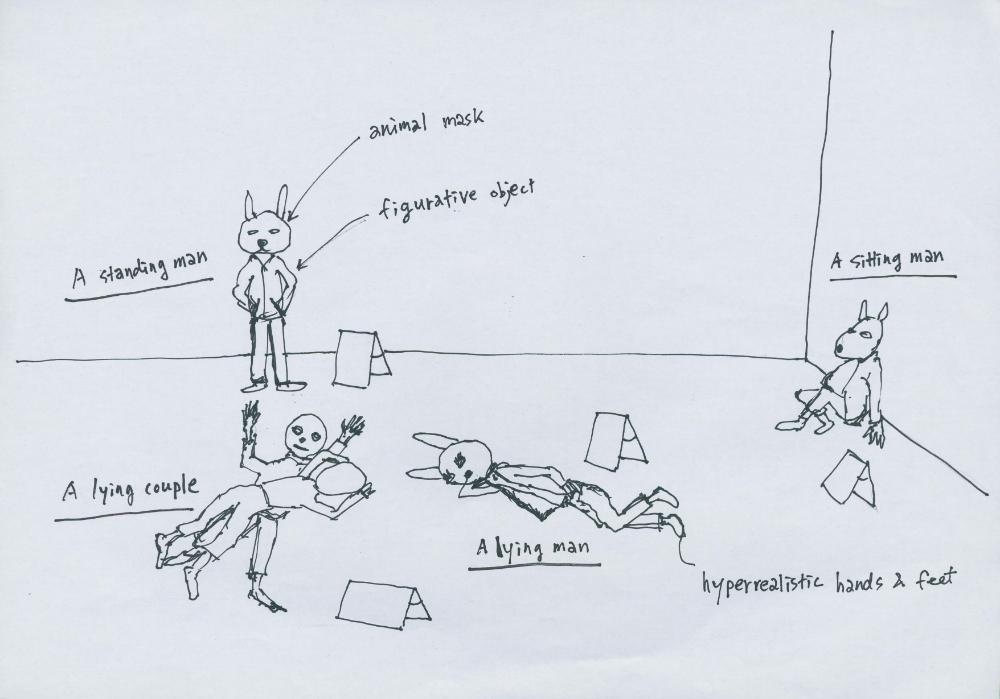 animal mask
figurative object
A standing man
A sitting man
A lying couple
A lying man
hyperrealistic hands & feet